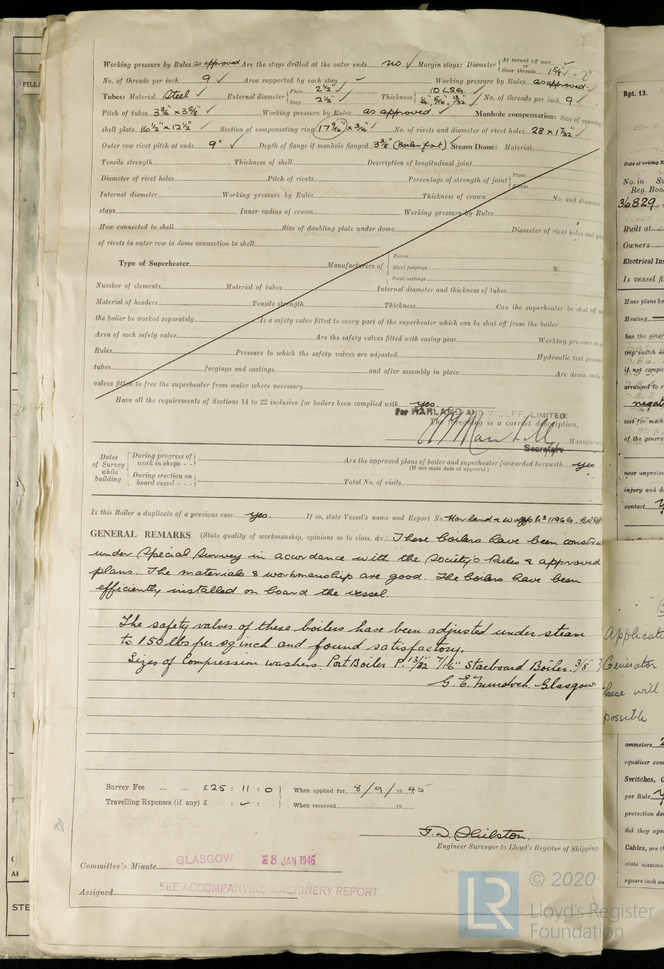 Working pressure by Rules as approved Are the stays drilled at the outer ends no ✓ Margin stays: Diameter { At turned off part, or Over threads 1 5/8" ✓
No. of threads per inch 9 ✓ Area supported by each stay ✓ Working pressure by Rules as approved
Tubes: Material Steel ✓ External diameter { Plain 2½" Stay 2½" ✓ Thickness { 10 LSG ¼, 5/16, No. of threads per inch 9 ✓
Pitch of tubes 3¾" x 3 5/8" ✓ Working pressure by Rules as approved ✓ Manhole compensation: Size of opening
shell plate 16½" x 12½" ✓ Section of compensating ring No. of rivets and diameter of rivet holes 28 x 1 7/32" ✓
Outer row rivet pitch at ends 9" ✓ Depth of flange if manhole flanged 3 3/8" (Boiler front) Steam Dome: Material
Tensile strength Thickness of shell Description of longitudinal joint
Diameter of rivet holes Pitch of rivets Percentage of strength of joint { Plate Rivets
Internal diameter Working pressure by Rules Thickness of crown No. and diameter
stays Inner radius of crown Working pressure by Rules
How connected to shell Size of doubling plate under dome Diameter of rivet holes and
of rivets in outer row in dome connection to shell
Type of Superheater Manufacturers of { Tubes Steel forgings Steel castings
Number of elements Material of tubes Internal diameter and thickness of tubes
Material of headers Tensile strength Thickness Can the superheater be shut off
the boiler be worked separately Is a safety valve fitted to every part of the superheater which can be shut off from the boiler
Area of each safety valve Are the safety valves fitted with easing gear Working pressure
Rules Pressure to which the safety valves are adjusted Hydraulic test pressure
tubes forgings and castings and after assembly in place Are drain cocks
valves fitted to free the superheater from water where necessary
Have all the requirements of Sections 14 to 22 inclusive for boilers been complied with yes.
For HARLAND AND WOLFF, LIMITED.
The foregoing is a correct description,
Secretary Manufac
Dates of Survey while building { During progress of work in shops - - During erection on board vessel - - -
Are the approved plans of boiler and superheater forwarded herewith yes
(If not state date of approval.)
Total No. of visits
Is this Boiler a duplicate of a previous case yes. If so, state Vessel's name and Report No. Harland & Wolff
GENERAL REMARKS (State quality of workmanship, opinions as to class, &c. These boilers have been constru
under Special Survey in accordance with the Society's Rules & approved
plans. The materials & workmanship are good. The boilers have been
efficiently installed on board the vessel.
The safety valves of these boilers have been adjusted under steam
to 150 lbs per sq inch and found satisfactory.
Sizes of Compression washers. Port Boiler P. 13/32" 7/16" Starboard Boiler. 3/8"
G. E. Murdoch Glasgow
Survey Fee ... ... £25 : 11 : 0 When applied for, 8/9/1945
Travelling Expenses (if any) £ : ✓ : When received, 19
Engineer Surveyor to Lloyd's Register of Shipping.
Committee's Minute GLASGOW 28 JAN 1946
Assigned SEE ACCOMPANYING MACHINERY REPORT
Rpt. 13.
No. in
Reg. Book
36829
Built at
Owners
Electrical In
Is vessel f
Have plans be
Heating
trip switch
if not comp
arranged to
negat
test for mach
of the genera
near unpraised
injury and d
contact
Applicat
Generator
these will
possible
ammeters
equaliser con
Switches,
per Rule
protection dev
did they oper
Cables, are th
state maximum
square inch an
LR
© 2020
Lloyd's Register
Foundation